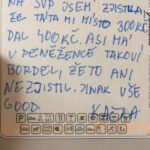 NA SVP JSEM ZJISTILA,
ŽE TAŤTA MI MÍSTO 300 KČ
DAL 400 KČ. ASI MÁ
V PENĚŽENCE TAKOVÍ
BORDEL, ŽETO ANI
NEZJISTIL. JINAK VŠE
GOOD. KÁJA